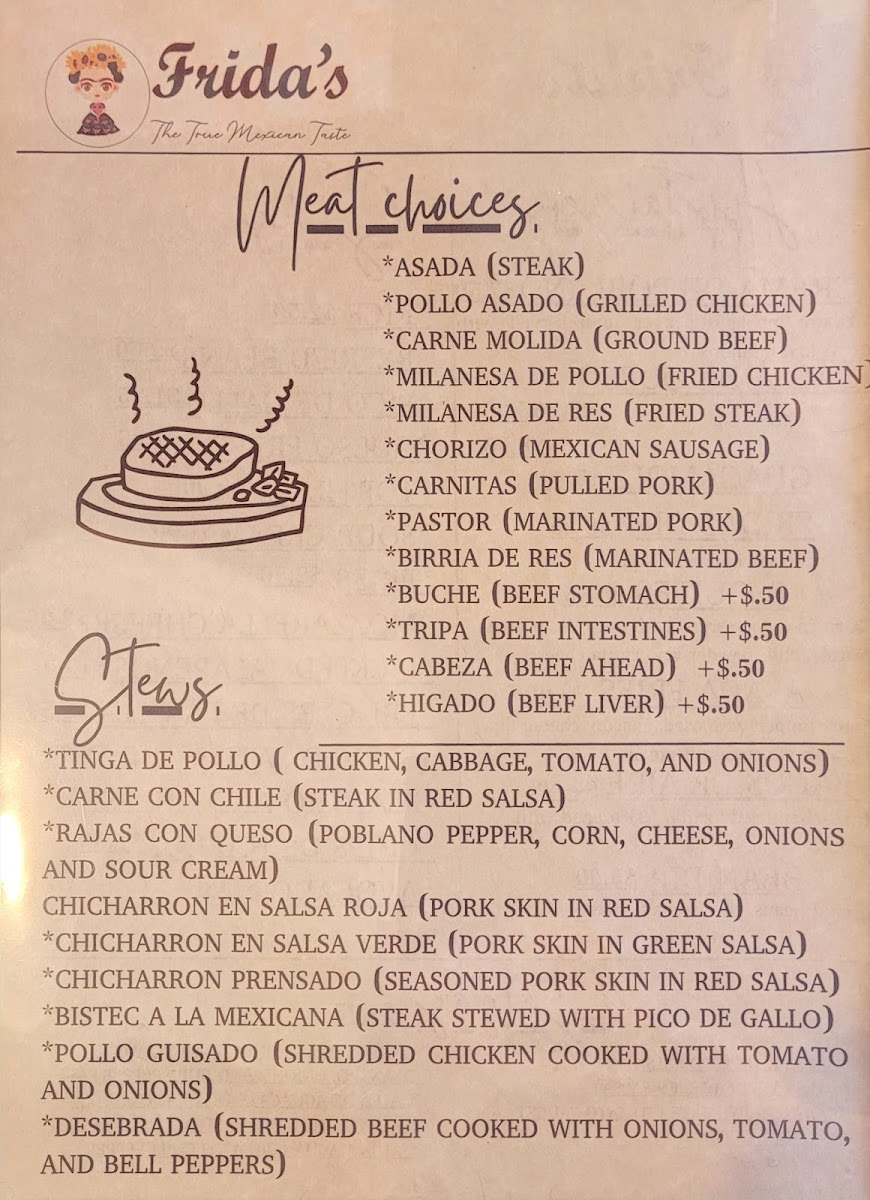 Frida's
The True Mexican Taste
Meat choices
*ASADA (STEAK)
*POLLO ASADO (GRILLED CHICKEN)
*CARNE MOLIDA (GROUND BEEF)
*MILANESA DE POLLO (FRIED CHICKEN)
*MILANESA DE RES (FRIED STEAK)
*CHORIZO (MEXICAN SAUSAGE)
*CARNITAS (PULLED PORK)
*PASTOR (MARINATED PORK)
*BIRRIA DE RES (MARINATED BEEF)
*BUCHE (BEEF STOMACH) +$.50
*TRIPA (BEEF INTESTINES) +$.50
*CABEZA (BEEF AHEAD) +$.50
*HIGADO (BEEF LIVER) +$.50
Stews
*TINGA DE POLLO ( CHICKEN, CABBAGE, TOMATO, AND ONIONS)
*CARNE CON CHILE (STEAK IN RED SALSA)
*RAJAS CON QUESO (POBLANO PEPPER, CORN, CHEESE, ONIONS
AND SOUR CREAM)
CHICHARRON EN SALSA ROJA (PORK SKIN IN RED SALSA)
*CHICHARRON EN SALSA VERDE (PORK SKIN IN GREEN SALSA)
*CHICHARRON PRENSADO (SEASONED PORK SKIN IN RED SALSA)
*BISTEC A LA MEXICANA (STEAK STEWED WITH PICO DE GALLO)
*POLLO GUISADO (SHREDDED CHICKEN COOKED WITH TOMATO
AND ONIONS)
*DESEBRADA (SHREDDED BEEF COOKED WITH ONIONS, TOMATO,
AND BELL PEPPERS)